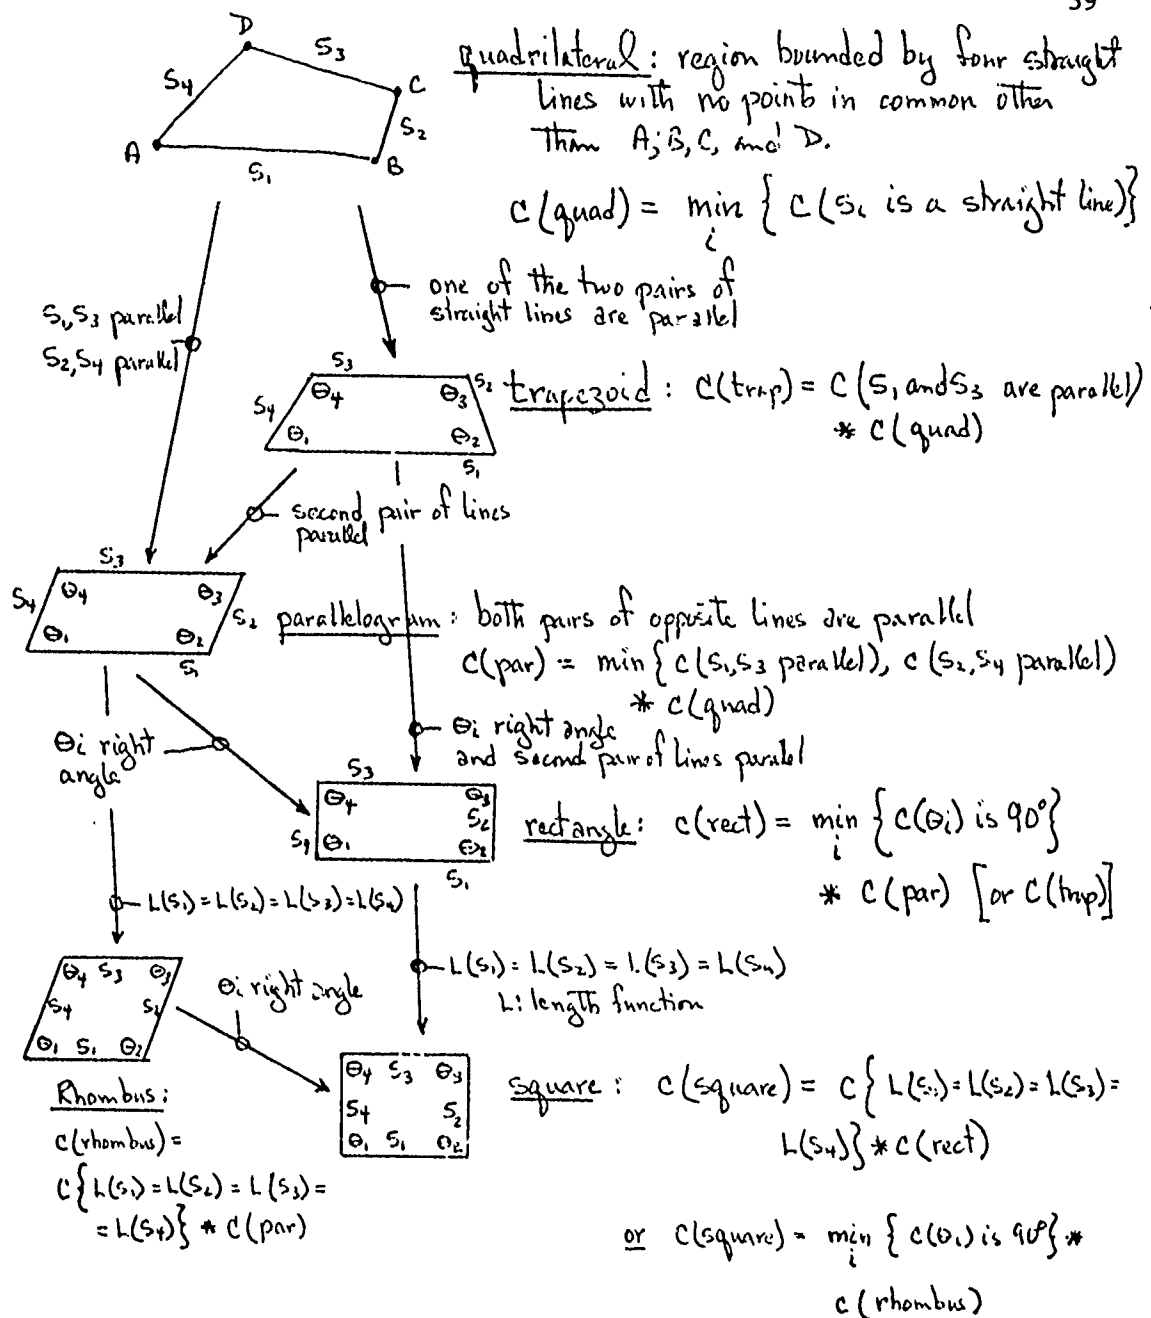 39
D
S3
S4
C
S2
A
B
S1
quadrilateral : region bounded by four straight
lines with no points in common other
than A, B, C, and D.
C(quad) = min { C(Si is a straight line)}
i
one of the two pairs of
straight lines are parallel
S1, S3 parallel
S2, S4 parallel
S3
S4
S2
θ4 θ3
θ1 θ2
S1
trapezoid : C(trap) = C(S1 and S3 are parallel)
* C(quad)
second pair of lines
parallel
S3
S4
θ4 θ3
θ1 θ2
S2
S1
parallelogram : both pairs of opposite lines are parallel
C(par) = min { C(S1,S3 parallel), C(S2,S4 parallel)
* C(quad)
θi right
angle
θi right angle
and second pair of lines parallel
S3
θ4 θ3
S2
S4 θ1 θ2
S1
rectangle : C(rect) = min { C(θi) is 90°}
i
* C(par) [or C(trap)]
L(S1) = L(S2) = L(S3) = L(S4)
L(S1) = L(S2) = L(S3) = L(S4)
L: length function
θ4 S3 θ3
S4 S2
θ1 S1 θ2
θi right angle
Rhombus :
C(rhombus) =
C{ L(S1) = L(S2) = L(S3) =
= L(S4)} * C(par)
θ4 S3 θ3
S4 S2
θ1 S1 θ2
square : C(square) = C{ L(S1) = L(S2) = L(S3) =
L(S4)} * C(rect)
or C(square) = min { C(θi) is 90°} *
i
C(rhombus)